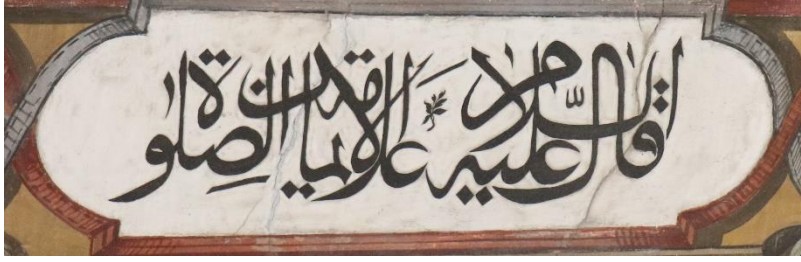 قال عليه السلام علامة الايمان الصلوة